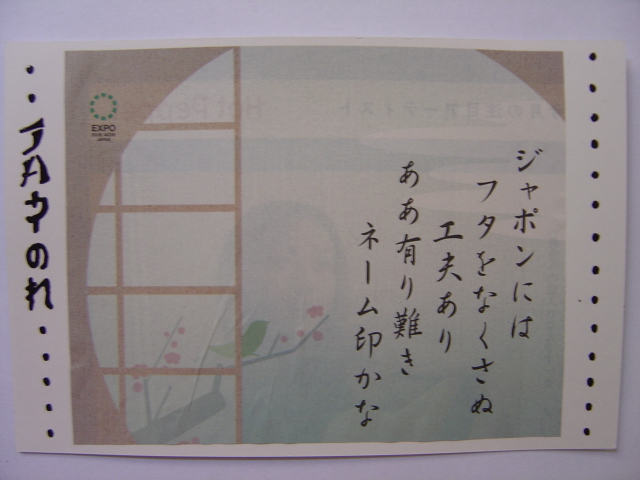 ジャポンには
フタをなくさぬ
工夫あり
ああ有り難き
ネーム印かな
EXPO
JAPAN